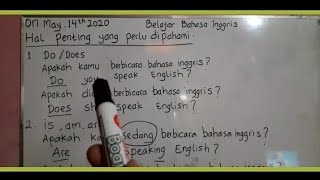 On May. 14th 2020 Belajar Bahasa Inggris
Hal Penting yang perlu dipahami.
1 Do/Does
Apakah kamu berbicara bahasa inggris?
Do you speak English?
Apakah dia berbicara bahasa inggris?
Does speak English?
2. is, am,
Apakah sedang berbicara bahasa inggris?
Are speaking English?